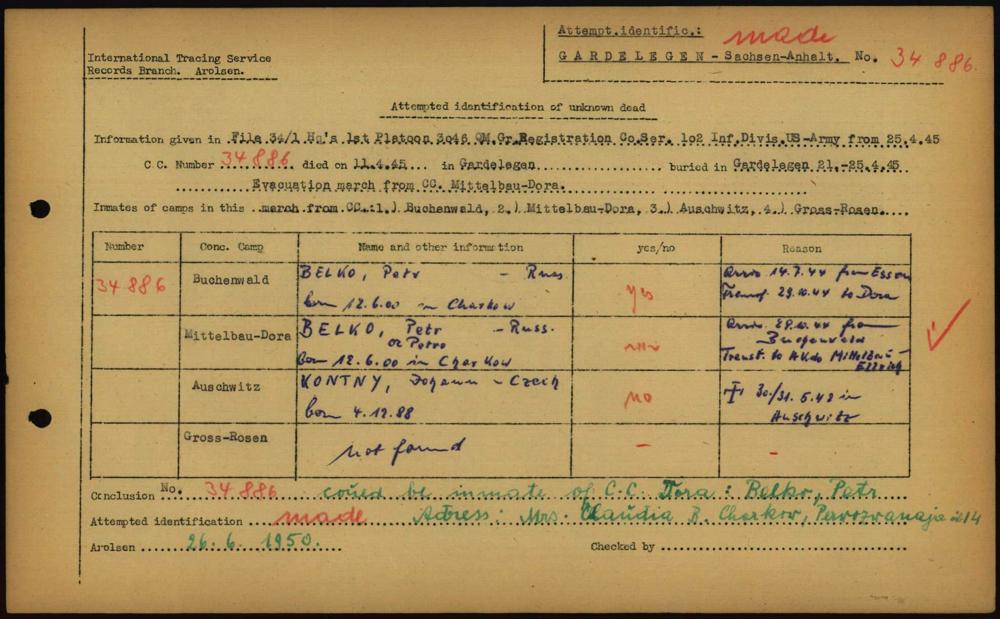 Attempt.identific.: made
GARDELEGEN - Sachsen-Anhalt. No. 34 886.
International Tracing Service
Records Branch. Arolsen.
Attempted identification of unknown dead
Information given in File 34/1 Hq's 1st Platoon 3046 QM.Gr.Registration Co.Ser. 102 Inf.Divis.US-Army from 25.4.45
C C. Number 34886 died on 11.4.45 in Gardelegen buried in Gardelegen 21.-25.4.45
Evacuation march from CC. Mittelbau-Dora.
Inmates of camps in this march from CC.:1.) Buchenwald, 2.) Mittelbau-Dora, 3.) Auschwitz, 4.) Gross-Rosen
Number Conc. Camp Name and other information yes/no Reason
34 886 Buchenwald BELKO, Petr - Russ. yes arriv. 14.7.44 from Essen
born 12.6.00 in Charkow Transf. 29.10.44 to Dora
Mittelbau-Dora BELKO, Petr - Russ. arriv. 29.10.44 from
or Petro Buchenwald
born 12.6.00 in Charkow Transf. to AKdo Mittelbau-
Ellrich
Auschwitz KONTNY, Johann - Czech no † 30/31.5.42 in
born 4.12.88 Auschwitz
Gross-Rosen not found - -
Conclusion No. 34 886 could be inmate of C.C. Dora: Belko, Petr
Attempted identification made Adress: Mrs. Claudia B. Charkow, 14
Arolsen 26. 6. 1950. Checked by